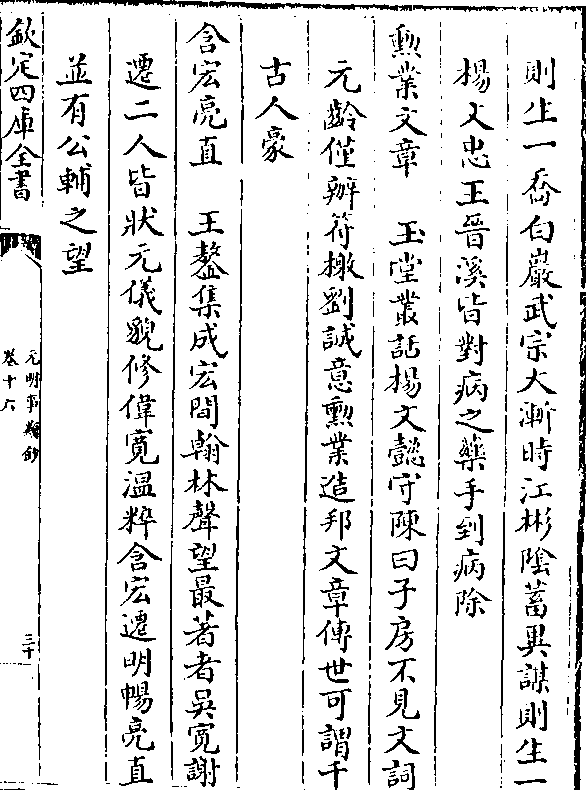 則生一喬白巖武宗大漸時江彬陰蓄異謀則生一
楊文忠王晉溪皆對病之藥手到病除
勲業文章　玉堂叢話楊文懿守陳曰子房不見文詞
元齡僅辦符檄劉誠意勲業造邦文章傳世可謂千
古人豪
含宏亮直　王鏊集成宏間翰林聲望最著者吳寛謝
遷二人皆狀元儀貌修偉寛温粹含宏遷明暢亮直
並有公輔之望
欽定四庫全書
元明事類鈔
卷十六
三十